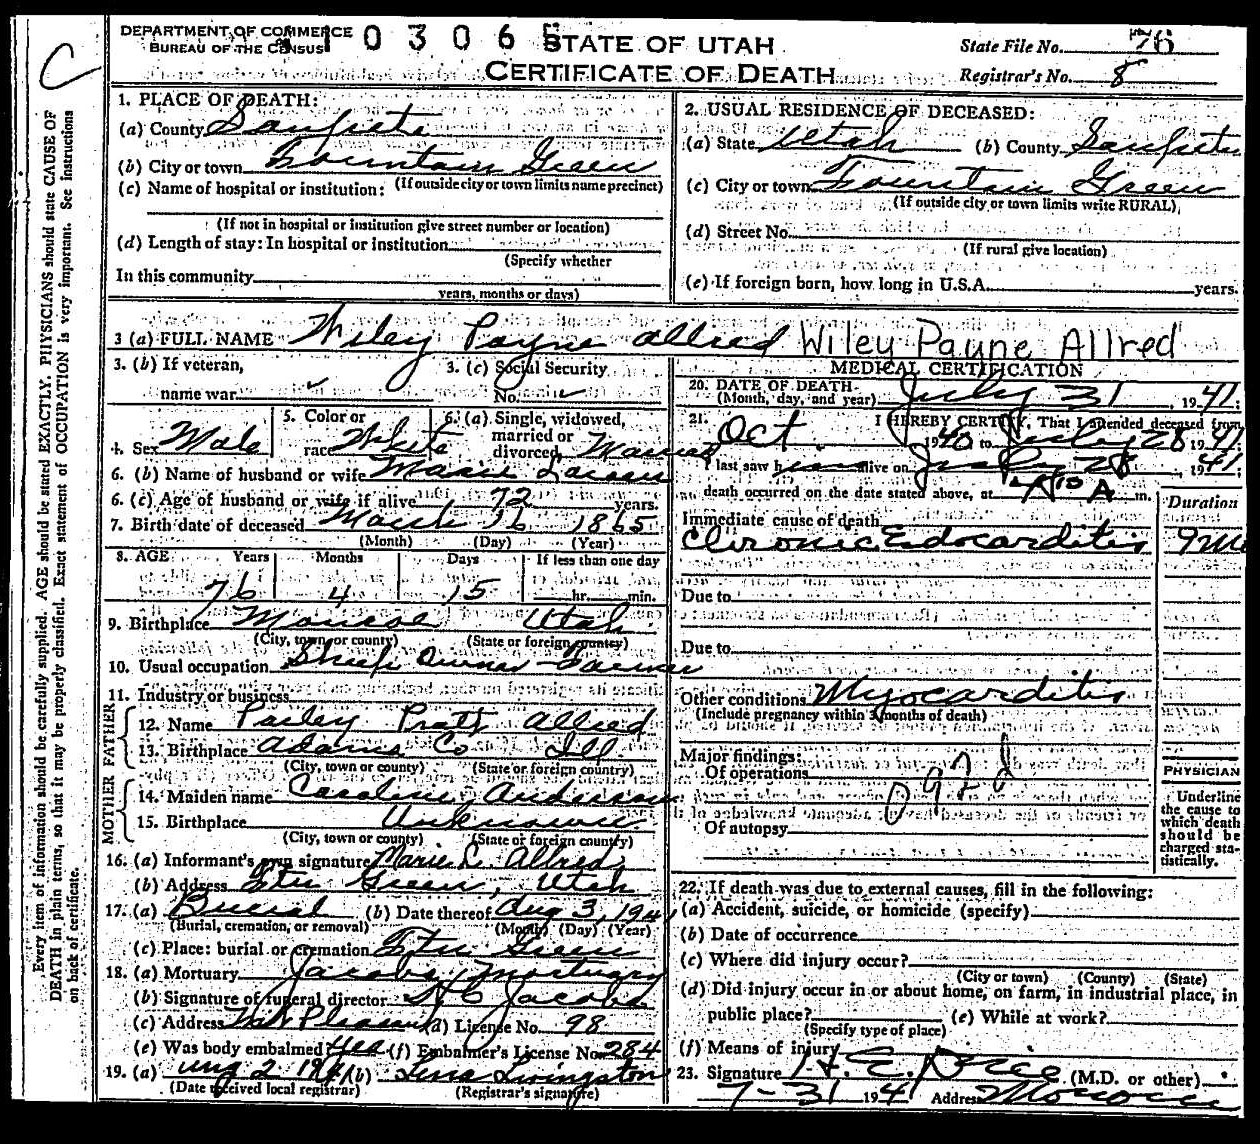 DEPARTMENT OF COMMERCE
BUREAU OF THE CENSUS
10306
STATE OF UTAH
CERTIFICATE OF DEATH
State File No. 76
Registrar's No. 8
C
Every item of information should be carefully supplied. AGE should be stated EXACTLY. PHYSICIANS should state CAUSE OF
DEATH in plain terms, so that it may be properly classified. Exact statement of OCCUPATION is very important. See instructions
on back of certificate.
1. PLACE OF DEATH:
(a) County Sanpete
(b) City or town Fountain Green
(If outside city or town limits name precinct)
(c) Name of hospital or institution:
(If not in hospital or institution give street number or location)
(d) Length of stay: In hospital or institution
(Specify whether
In this community
years, months or days)
2. USUAL RESIDENCE OF DECEASED:
(a) State Utah (b) County Sanpete
(c) City or town Fountain Green
(If outside city or town limits write RURAL)
(d) Street No.
(If rural give location)
(e) If foreign born, how long in U.S.A. years.
3 (a) FULL NAME Wiley Payne Allred Wiley Payne Allred
3. (b) If veteran,
name war
3. (c) Social Security
No.
4. Sex Male
5. Color or
race White
6. (a) Single, widowed,
married or
divorced Married
6. (b) Name of husband or wife Marie Larsen
6. (c) Age of husband or wife if alive 72 years.
7. Birth date of deceased March 16 1865
(Month) (Day) (Year)
8. AGE Years Months Days If less than one day
76 4 15 hr. min.
9. Birthplace Monroe Utah
(City, town or county) (State or foreign country)
10. Usual occupation Sheep Owner - Farmer
11. Industry or business
FATHER
12. Name Parley Pratt Allred
13. Birthplace Adams Co Ill.
(City, town or county) (State or foreign country)
MOTHER
14. Maiden name Caroline Anderson
15. Birthplace Unknown
(City, town or county) (State or foreign country)
16. (a) Informant's own signature Marie L. Allred
(b) Address Ftn Green, Utah
17. (a) Burial (b) Date thereof Aug 3, 1941
(Burial, cremation, or removal) (Month) (Day) (Year)
(c) Place: burial or cremation Ftn Green
18. (a) Mortuary Jacobs Mortuary
(b) Signature of funeral director Jacobs
(c) Address Mt Pleasant (d) License No. 98
(e) Was body embalmed Yes (f) Embalmer's License No. 284
19. (a) Aug 2 1941 (b) Lena Livingston
(Date received local registrar) (Registrar's signature)
MEDICAL CERTIFICATION
20. DATE OF DEATH
(Month, day, and year) July 31, 1941;
21. I HEREBY CERTIFY, That I attended deceased from
Oct. 1940 to July 28 1941
I last saw him alive on July 28, 1941
death occurred on the date stated above, at A m.
Duration
Immediate cause of death
Chronic Endocarditis 9 Mo
Due to
Due to
Other conditions Myocarditis
(Include pregnancy within 3 months of death)
Major findings:
Of operations
092d
Of autopsy
PHYSICIAN
Underline
the cause to
which death
should be
charged sta-
tistically.
22. If death was due to external causes, fill in the following:
(a) Accident, suicide, or homicide (specify)
(b) Date of occurrence
(c) Where did injury occur?
(City or town) (County) (State)
(d) Did injury occur in or about home, on farm, in industrial place, in
public place? (e) While at work?
(Specify type of place)
(f) Means of injury
23. Signature H. E. Rice (M.D. or other)
7-31 1941 Address